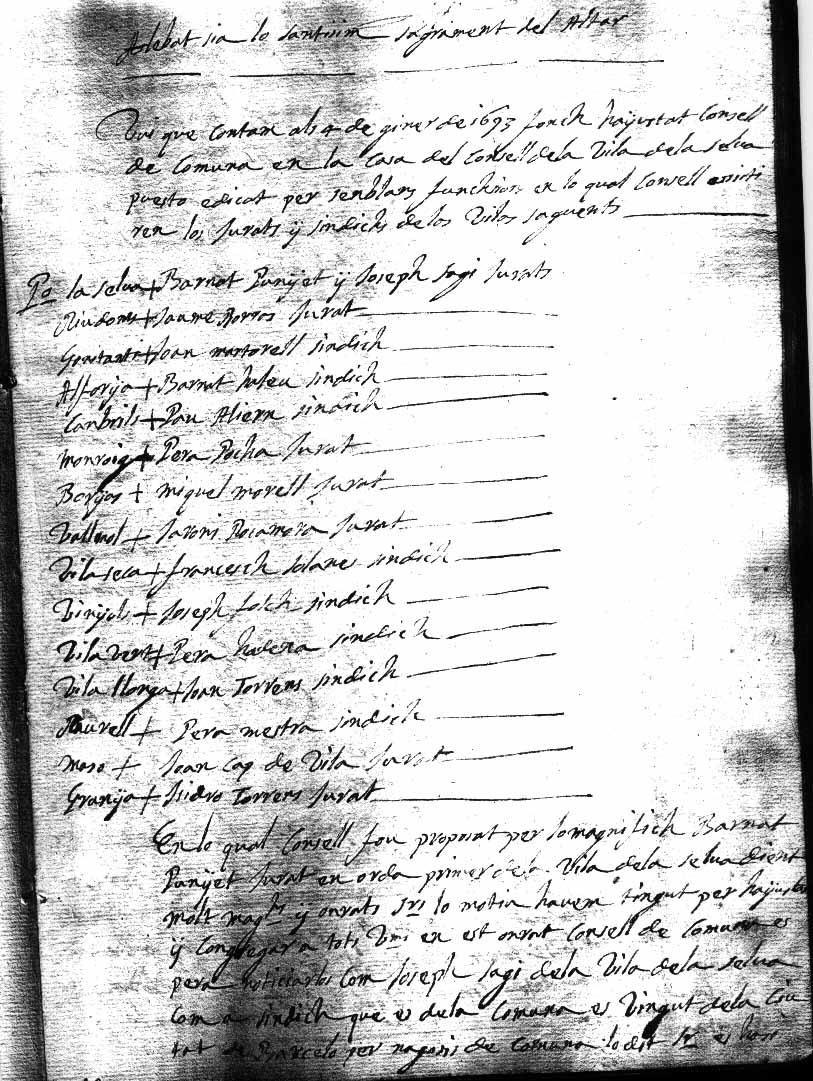 Alebat sia lo santisim sagrament del Altar
Vui que contam als 4 de giner de 1693 fonch hajustat Consell
de Comuna en la Casa del Consell dela Vila dela selva
puesto edicat per senblans funchions en lo qual Consell asisti
ren los Jurats ÿ sindichs de los Vilas saguents
Po la selva + Barnat Punÿet ÿ Joseph sagi Jurats
Riudoms + Jaume Borros Jurat
Constanti + Joan martorell sindich
Alforja + Barnat sindich
Canbrils + Pau Aliern sindich
Monroig + Pera Rocha Jurat
Borjas + miquel morell Jurat
Vallmol + Jaroni Rocamora Jurat
Vilaseca + francesch solanes sindich
Vinÿols + Joseph folch sindich
Vilavert + Pera sindich
Vilallonga + Joan Torrens sindich
Raurell + Pera mestra sindich
Maso + Joan Cap de Vila Jurat
Granÿa + Isidro Torrens Jurat
En lo qual Consell fou proposat per lo magnifich Barnat
Punÿet Jurat en orda primer dela Vila dela selva dient
molt magchs ÿ onrats Srs lo motiu havem tingut per hajustar
ÿ Congregar a tots Vms en est onrat Consell de Comuna es
pera noticiarlos Com Joseph sagi dela Vila dela selva
Com a sindich que es dela Comuna es Vingut dela Ciu
tat de Barcelo per nagosis de Comuna lo dit Sr es